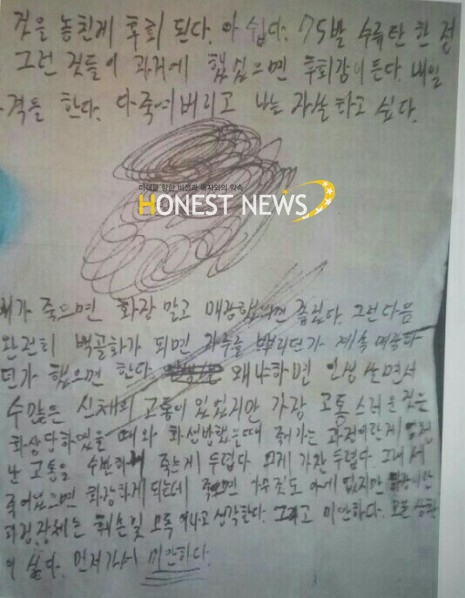 것을 놓친게 후회 된다. 아 쉽다. 75발 수류탄 한 정
그런 것들이 과거에 했었으면 후회감이 든다. 내일
격을 한다. 다죽여버리고 나는 자살하고 싶다.
미래를 향한 비전과 독자와의 약속
HONEST NEWS
내가 죽으면 화장 말고 매장했으면 좋겠다. 그런다음
완전히 백골화가 되면 가루를 뿌리던가 계속 매장하
던가 했으면 한다. 왜냐하면 인생 살면서
수많은 신체의 고통이 있었지만 가장 고통 스러운 것은
화상당하였을 때와 화생방했을때 죽어가는 과정이란게
난 고통을 수반하 죽는게 두렵다. 그게 가장 두렵다. 그래서
죽었으면 화장하게 되는데 죽으면 아에 없지만
자체는 훼손 및 모욕 이라고 생각한다. 그리고 미안하다. 모든 상황
이 싫다. 먼저가서 미안하다.